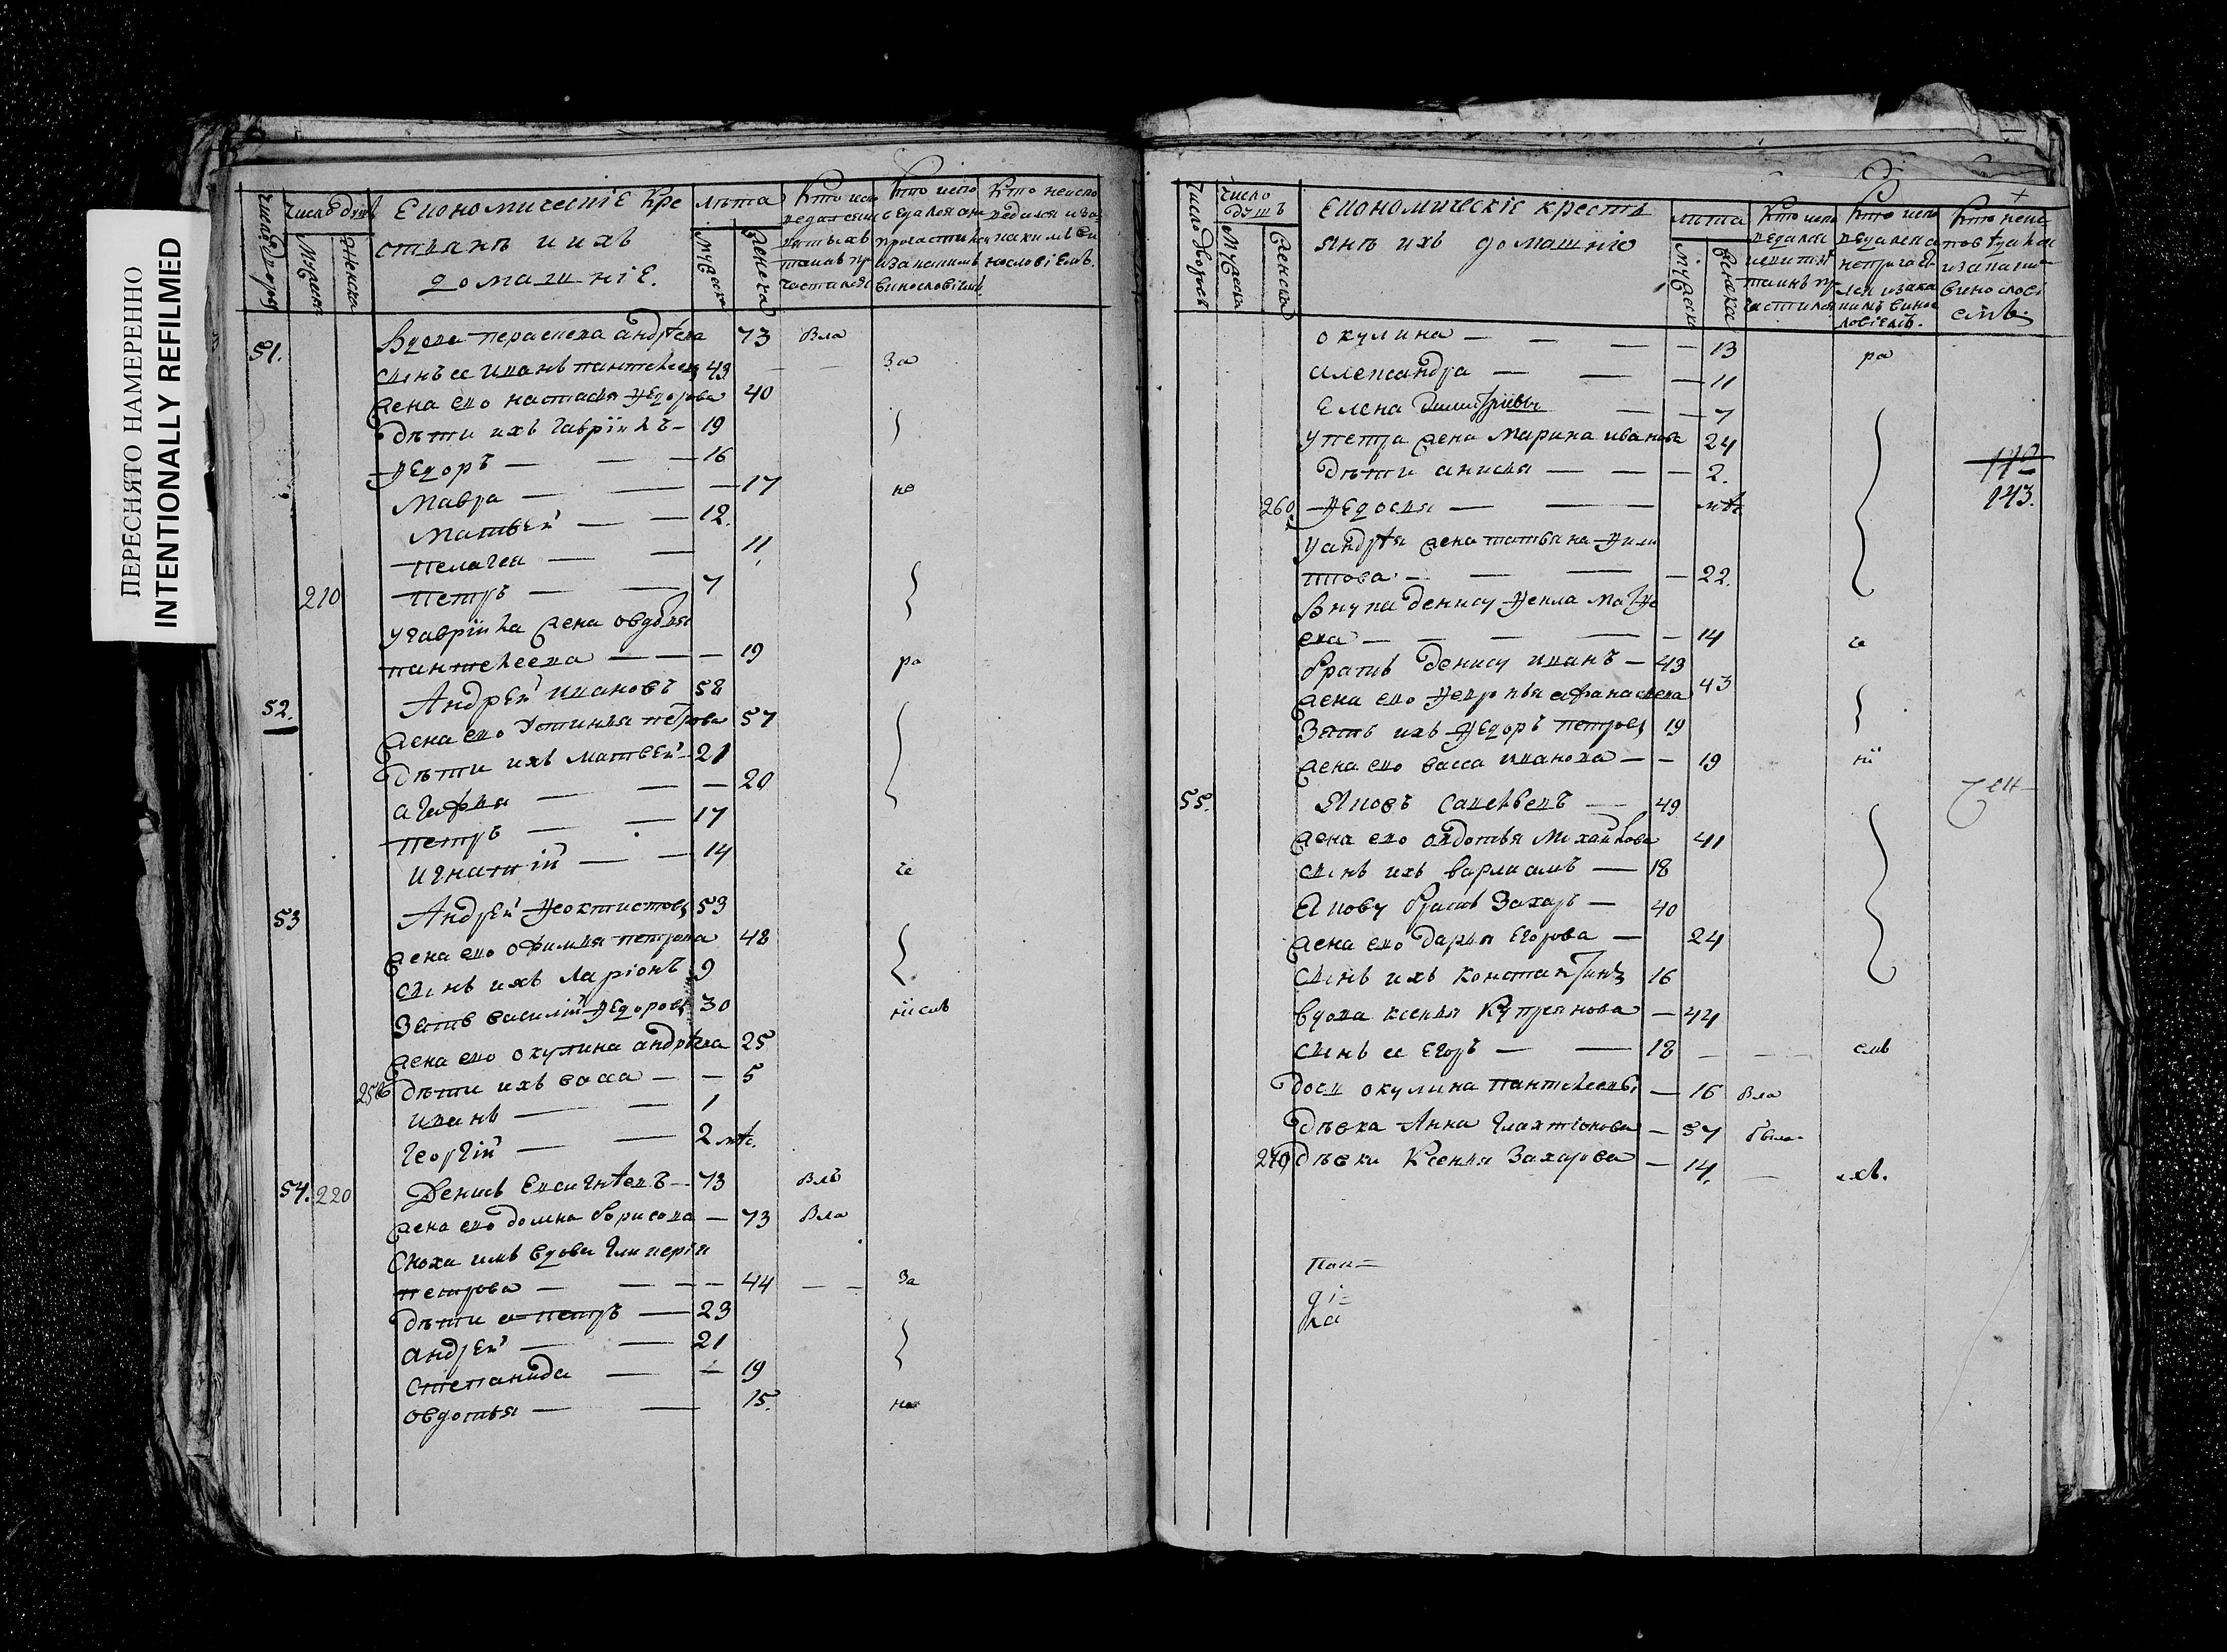 ПЕРЕСНЯТО НАМЕРЕННО
INTENTIONALLY REFILMED
число дворовъ
Число душъ
Мужеска
Женска
Економическіе кре
стьянъ и ихъ
домашніе.
лѣта
Мужеска
Женска
Кто испо
Кто испо
Кто неиспо
51.
Вдова Параскева Андрѣева 73 Вла
сынъ ее Иванъ Пантелеевъ 43 — — За
жена его Настасья Ѳедорова 40
дѣти ихъ Гаврiилъ — 19
Ѳедоръ — — — 16
Мавра — — — 17 не
Матвей — — 12.
Пелагея — — 11
210 Петръ — — 7
у Гаврiила жена Овдотья
Пантелеева — — — 19 ра
52. Андрей Ивановъ 58
жена его Устинья Петрова 57
дѣти ихъ Матвей — 21
Агафья — — — 20
Петръ — — 17
Игнатiй — — 14 че
53 Андрей Ѳеоктистовъ 59
жена его Офимья Петрова 48
сынъ ихъ Ларiонъ 9
Зять Василiй Ѳедоровъ 30 нiемъ
жена его Окулина Андрѣева 25
250 дѣти ихъ Васса — — 5
Иванъ — — 1
Георгiй — — 2 мѣс.
54. 220 Денисъ Евсигнѣевъ — 73 Влъ
жена его Домна Борисова — 73 Вла
Сноха имъ вдова Гликерiя
Петрова — — — — 44 — — За
дѣти ее Петръ — 23
Андрей — — 21
Степанида — — 19
Овдотья — — 15. не
Число дворовъ
Число
душъ
Мужеска
Женска
Економическіе кресть
янъ ихъ домашніе
лѣта
Мужеска
Женска
Кто испо
Кто испо
Кто неис
Окулина — — — — 13 ра
Александра — — — 11
Елена Димитрiевы — — 7
у Петра жена Марина Иванова 24
дѣти Анисья — — — 2.
140
143.
260 Ѳедосья — — мѣс
у Андрѣя жена Татьяна Фили
ппова — — — — 22.
Внука Денису Ѳекла Матѳе
ева — — — — — 14 че
братъ Денису Иванъ — 43
жена его Ѳевронья Афанасьева 43
Зять ихъ Ѳедоръ Петровъ 19
жена его Васса Иванова — — 19 нi
55. Яковъ Савельевъ — 49
жена его Овдотья Михайлова 41
сынъ ихъ Варлаамъ — 18
Якову братъ Захаръ — 40
жена его Дарья Егорова — 24
сынъ ихъ Константинъ 16
Вдова Ксенья Купрiянова — 44
сынъ ее Егоръ — — 18 — — емъ
дочь Окулина Пантелеевы — 16 Вла
дѣвка Анна Галахтiонова — 57 была
270 дѣвка Ксенья Захарова — 14. — ихъ.